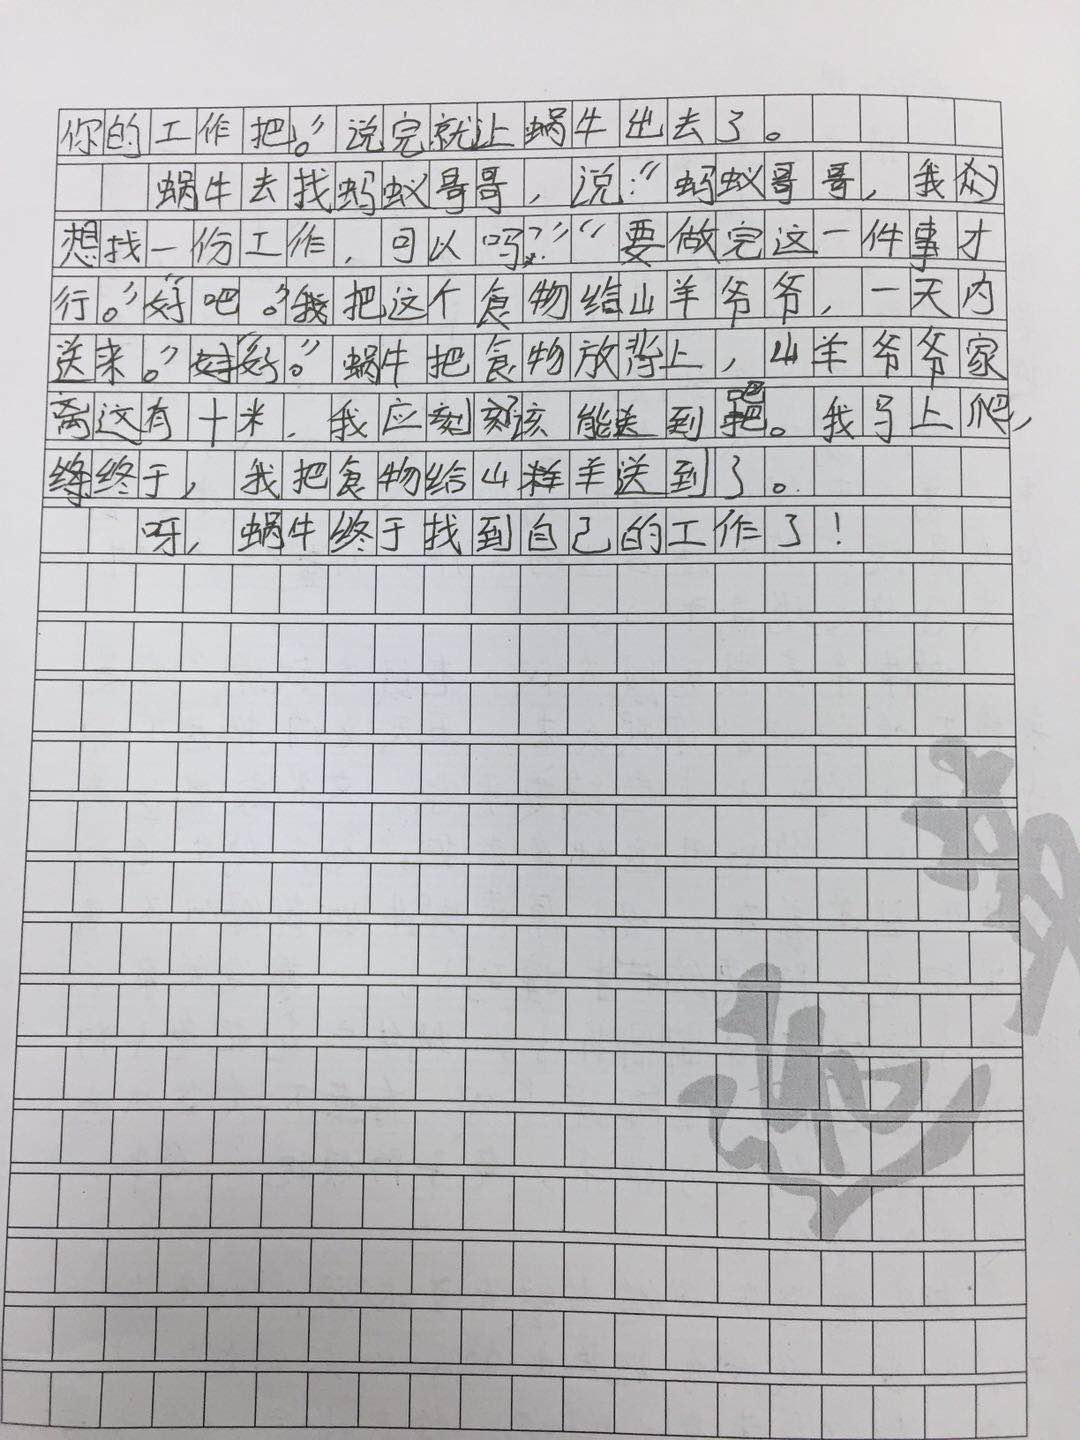 你的工作把。”说完就让蜗牛出去了。
蜗牛去找蚂蚁哥哥，说：“蚂蚁哥哥，我
想找一份工作，可以吗？”“要做完这一件事才
行。”“好吧。”“我把这个食物给山羊爷爷，一天内
送来。”“好。”蜗牛把食物放背上，山羊爷爷家
离这有十米，我应该能送到吧。我马上爬，
终于，我把食物给山羊送到了。
呀，蜗牛终于找到自己的工作了！